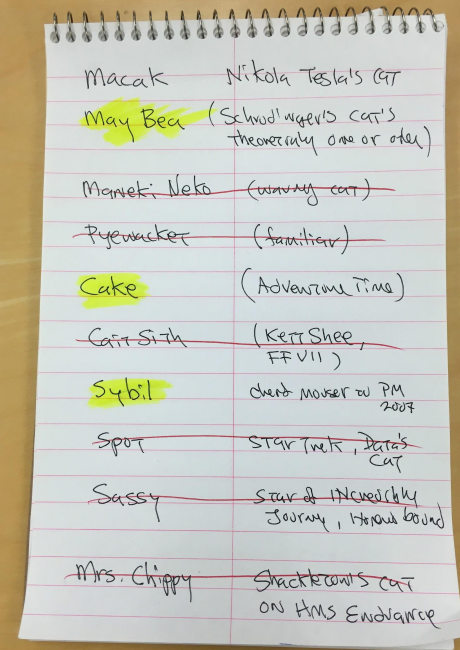 Macak Nikola Tesla's cat
May Bea (Schrodinger's cat's
theoretically one or other)
Maneki Neko (waving cat)
Pyewacket (familiar)
Cake (Adventure Time)
Cait Sith (Kett Shee,
FF VII)
Sybil chief mouser to PM
2007
Spot Star Trek, Data's
Cat
Sassy Star of Incredibly
Journey, Homeward bound
Mrs. Chippy Shackleton's cat
on HMS Endurance